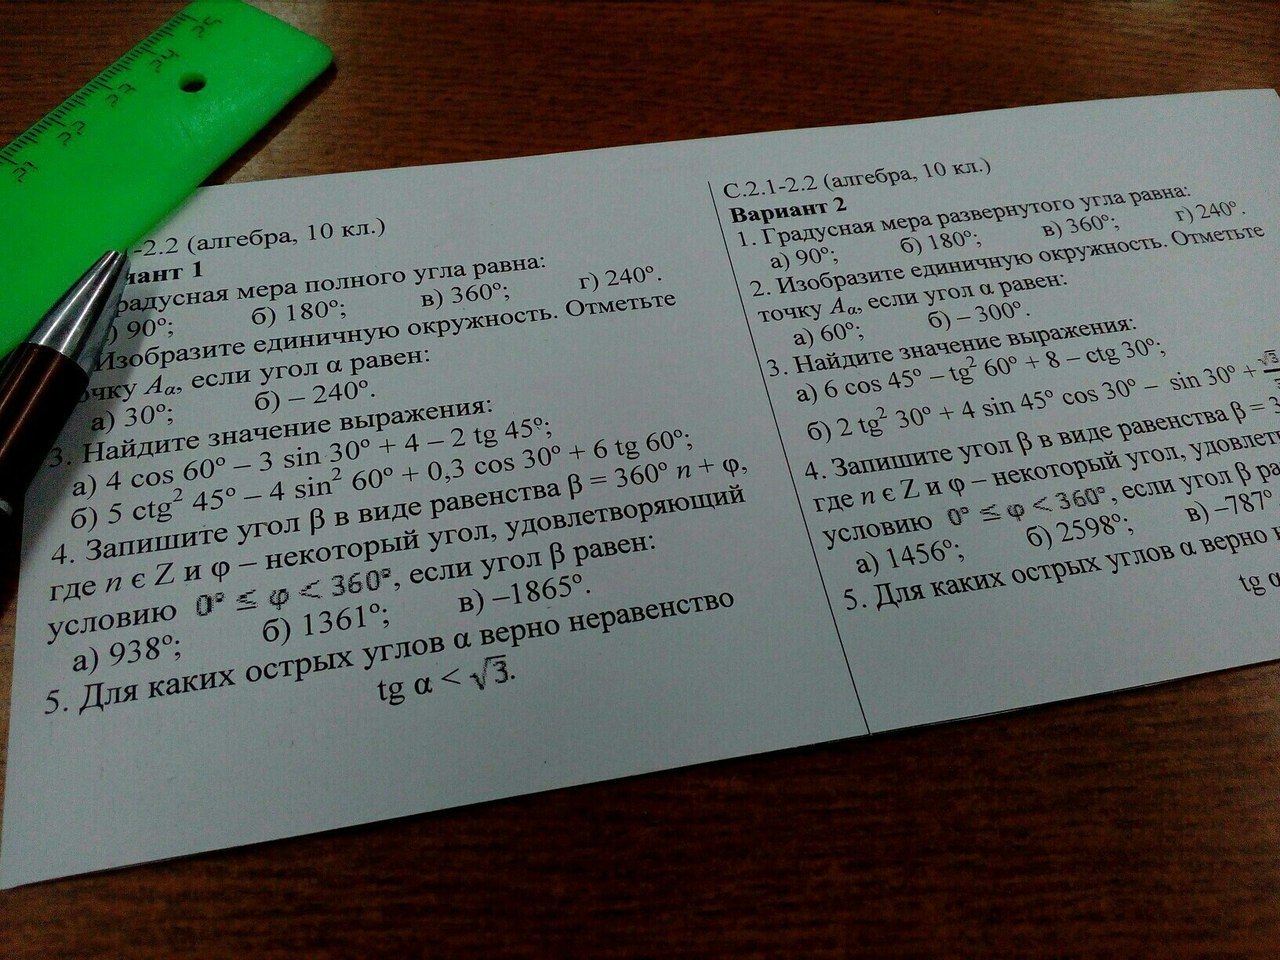 -2.2 (алгебра, 10 кл.)
1
мера полного угла равна:
90º; б) 180º; в) 360º; г) 240º.
Изобразите единичную окружность. Отметьте
Aα, если угол α равен:
а) 30º; б) – 240º.
3. Найдите значение выражения:
а) 4 cos 60º – 3 sin 30º + 4 – 2 tg 45º;
б) 5 ctg² 45º – 4 sin² 60º + 0,3 cos 30º + 6 tg 60º;
4. Запишите угол β в виде равенства β = 360º n + φ,
где n є Z и φ – некоторый угол, удовлетворяющий
условию 0° ≤ φ < 360°, если угол β равен:
а) 938º; б) 1361º; в) –1865º.
5. Для каких острых углов α верно неравенство
tg α < √3.
С.2.1-2.2 (алгебра, 10 кл.)
Вариант 2
1. Градусная мера развернутого угла равна:
а) 90º; б) 180º; в) 360º; г) 240º.
2. Изобразите единичную окружность. Отметьте
точку Aα, если угол α равен:
а) 60º; б) – 300º.
3. Найдите значение выражения:
а) 6 cos 45º – tg² 60º + 8 – ctg 30º;
б) 2 tg² 30º + 4 sin 45º cos 30º – sin 30º + √3
4. Запишите угол β в виде равенства β = 3
где n є Z и φ – некоторый угол,
условию 0° ≤ φ < 360°, если угол β
а) 1456º; б) 2598º; в) –787º
5. Для каких острых углов α верно
tg α
21 22 23 24 25